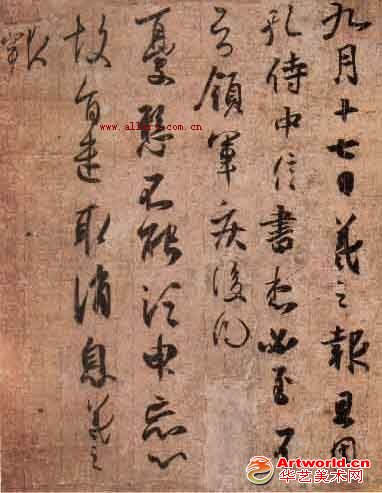 九月十七日羲之報且因
孔侍中信書想必至不
知領軍疾後問
憂懸不能須臾忘心
故旨遣取消息羲之
報
Artworld.cn
华艺美术网